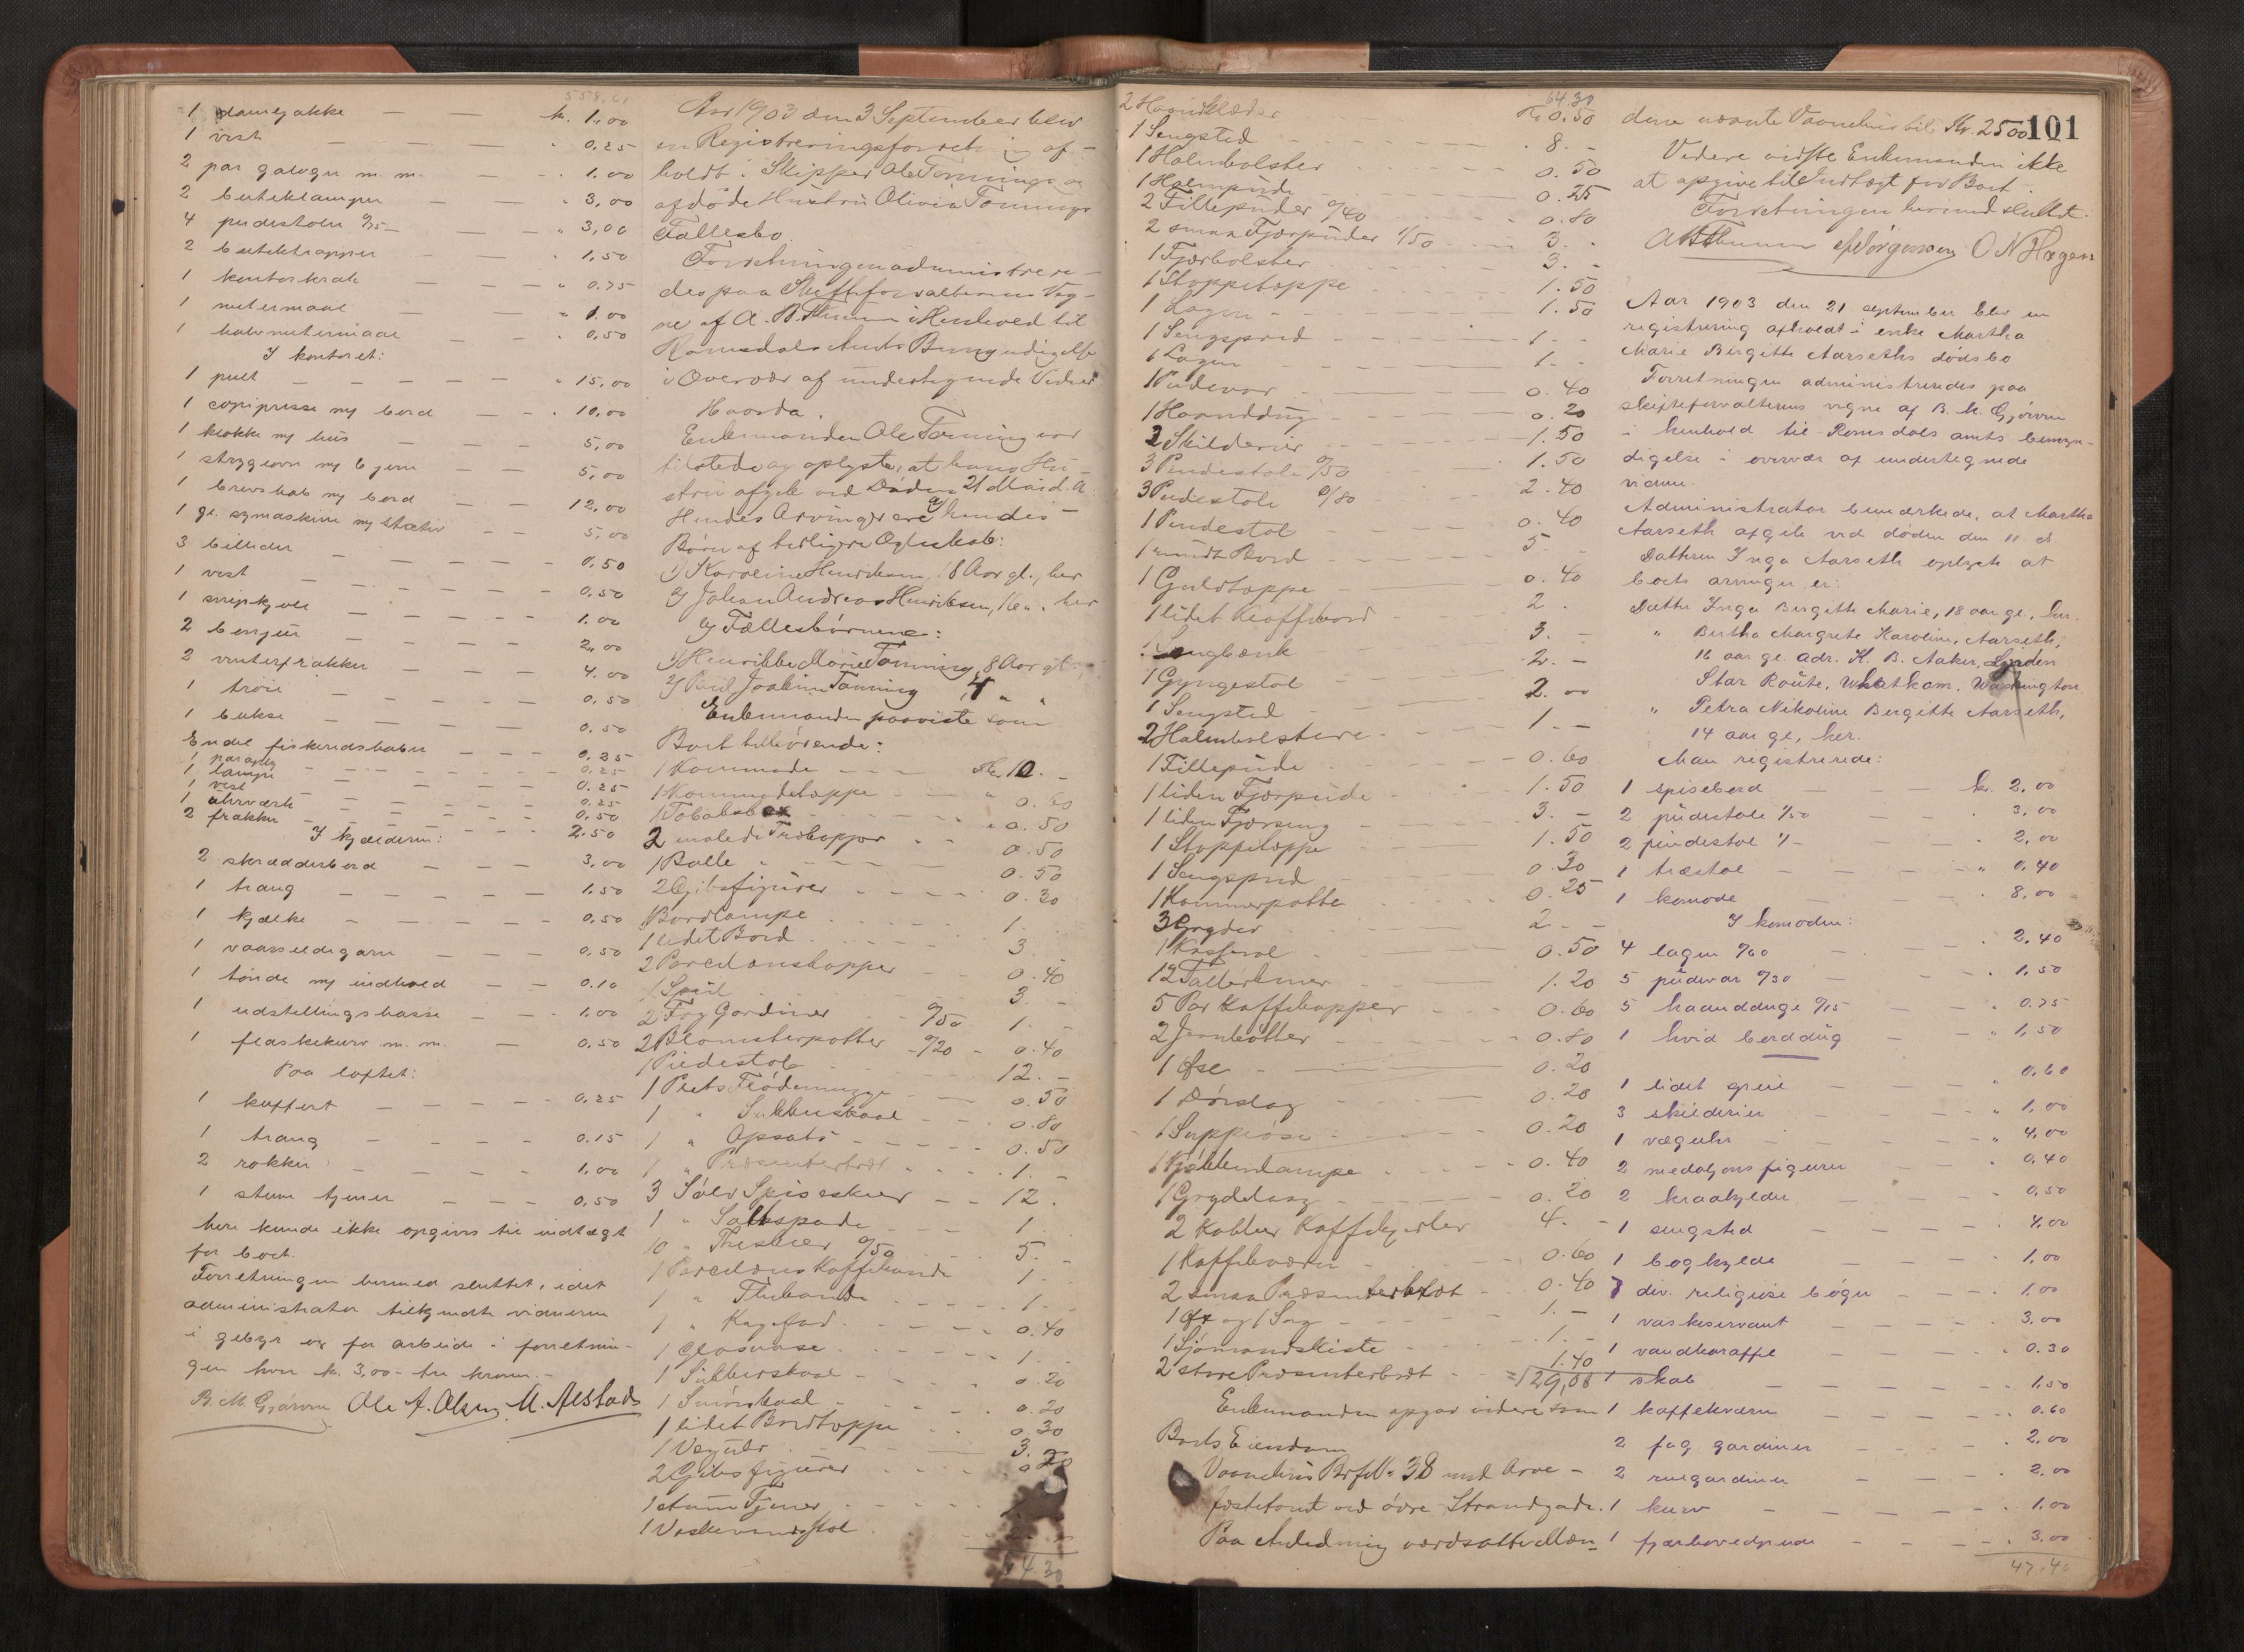 558.61
1 damejakke — — k. 1,00
1 vest — — — " 0.25
2 par galoger m. m. — " 1.00
2 butiklamper — — " 3,00
4 pudestoler %75 — " 3,00
2 butiktrapper — — " 1,50
1 kontorkrak — — " 0.75
1 metermaal — — " 1.00
1 halvmetermaal — — " 0,50
I kontoret:
1 pult — — — " 15,00
1 copipresse m/ bord — " 10,00
1 klokke m/ hus — — 5,00
1 strygeovn m/ 6 jern — 5,00
1 brevskab m/ bord — 12,00
1 gl. symaskine m/ stativ — 5,00
3 billeder — — — 0.50
1 vest — — — 0,50
1 snipkjole — — — 1.00
2 bonjur — — — 2,00
2 vinterfrakker — — 4.00
1 trøie — — — 0,50
1 bukse — — — 0.50
Endel fiskeredskaber — 0.25
1 paraply — — — 0.25
1 lampe — — — 0.25
1 vest — — — 0.25
1 uhrværk — — — 0.50
2 frakker — — — 2.50
I kjælderen:
2 skrædderbord — — 3,00
1 trang — — — 1,50
1 kjælke — — — 0,50
1 vaarsildgarn — — 0,50
1 tønde m/ indhold — — 0.10
1 udstillingskasse — — 1.00
1 flaskekurv m. m. — 0,50
Paa loftet:
1 kuffert — — — 0.25
1 trang — — — 0.15
2 rokker — — — 1,00
1 stum tjener — — — 0,50
here kunde ikke opgives til indtægt
for boet.
Forretningen hermed sluttet, idet
administrator tilkjendte vidnerne
i gebyr og for arbeide i forretnin-
gen hver k. 3,00 - tre kroner. -
B. M. Gjørvn Ole A. Olsen M. Alstad
Aar 1903 den 3 September blev
en Registreringsforretning af-
holdt i Skipper Ole Tønnings og
afdøde Hustru Olivia Tønnings
Fællesbo.
Forretningen administrere-
des paa Skifteforvalterens Veg-
ne af A. B. Thunem i Henhold til
Romsdals Amts Bemyndigelse
i Overvær af undertegnede Vidner
Haarda.
Enkemanden Ole Tønning var
tilstede og oplyste, at hans Hu-
stru afgik ved Døden 21 Mai d. A.
Hendes Arvinger ere a) hendes
Børn af tidligere Ægteskab:
1) Karoline Henriksen, 18 Aar gl., her
2) Johan Andreas Henriksen, 16 " , her
b) Fællesbørnene:
1) Henrikke Marie Tønning, 8 Aar gl.,
2) Paul Joakim Tønning 4 " "
Enkemanden paaviste som
Boet tilhørende:
1 Kommode — — Kr. 10. -
1 Kommodetæppe — " 0.60
1 Tobaksbox — " 0.50
2 malede Trækopper — 0.50
1 Balle — 0.50
2 Gibsfigurer — 0.30
1 Bordlampe — 1.
1 lidet Bord — 3
2 Porcelænskopper — 0.40
1 Speil — 3. -
2 Fag Gardiner %50 1. -
2 Blomsterpotter %20 - 0.40
1 Piedestal — 12. -
1 Plets Flødemugge — 0.50
1 " Sukkerskaal — 0.80
1 " Opsats — 0.50
1 " Præsenterbræt — 1. -
3 Sølv Spiseskeer — 12.
1 " Saltspade — 1
10 " Theskeer %50 — 5. -
1 Porcelæns Kaffekande 1 -
1 " Thekande — 1. -
1 " Kagefad — 0.40
1 Glasvase — 1. -
1 Sukkerskaal — 0.20
1 Smørskaal — 0.20
1 lidet Bordtæppe — 0.30
1 Vægur — 3. -
2 Gibsfigurer — 0.20
1 stum Tjener
1 Vaskevandsstol
64.30
64.30
2 Haandklæder Kr. 0.50
1 Sengsted — 8. -
1 Halmbolster — 0.50
1 Halmpude — 0.25
2 Fillepuder %40 0.80
2 smaa Fjærpuder 1/50 — 3. -
1 Fjærbolster — 3. -
1 Stoppetæppe — 1.50
1 Lagen — 1.50
1 Sengspred — 1 -
6 Lagen — 1. -
1 Pudevar — 0.40
1 Haanddug — 0.20
3 Skilderier — 1.50
3 Pindestole %50 — 1.50
3 Pudestole %80 2.40
1 Pindestol — 0.40
1 rundt Bord — 5 -
1 Gulvtæppe — 0.40
1 lidet Kaffebord — 2.
1 Sengbænk — 3. -
1 Gyngestol — 2. -
1 Sengsted — 2. 00
2 Halmbolstere — 1. -
1 Fillepude — 0.60
1 liden Fjærpude — 1.50
1 liden Fjærseng — 3. -
1 Stoppetæppe — 1.50
1 Sengspred — 0.30
1 Kammerpotte — 0.25
3 Gryder — 2. -
1 Kasserol — 0.50
12 Tallerkener — 1.20
5 Par Kaffekopper — 0.60
2 Jernbøtter — 0.80
1 Øse — 0.20
1 Dørslag — 0.20
1 Suppeøse — 0.20
1 Kjøkkenlampe — 0.40
1 Grydelaag — 0.20
2 Kobber Kaffekjedler 4. -
1 Kaffekværn — 0.60
2 smaa Præsenterbræt — 0.40
1 Øx og 1 Sag — 1. -
1 Sjømandskiste — 1. -
2 store Præsenterbræt — 1.40
129,06
Enkemanden opgav videre som
Boets Eiendom
Vaanehus Brf. No 38 med Arve-
fæstetomt ved øvre Strandgade.
Paa Anledning værdsatte Mæn-
dene nævnte Vaanehus til Kr. 2500 101
Videre vidste Enkemanden ikke
at opgive til Indtægt for Boet.
Forretningen hermed sluttet.
A B Thunem M Jørgensen O N Hagen
Aar 1903 den 21 september blev en
registrering afholdt i enke Martha
Marie Birgitte Aarseths dødsbo
Forretningen administreredes paa
skifteforvalterens vegne af B. M. Gjørvn
i henhold til Romsdals amts bemyn-
digelse i overvær af undertegnede
vidner.
Administrator bemærkede, at Martha
Aarseth afgik ved døden den 11 ds.
Datteren Inga Aarseth oplyste at
boets arvinger er:
Datter Inga Birgitte Marie, 18 aar gl., her.
" Bertha Margrete Karoline Aarseth,
16 aar gl. adr. K. B. Aaker, Lynden
Star Route, Whatkom. Washington.
" Petra Nikoline Birgitte Aarseth,
14 aar gl., her.
Man registrerede:
1 spisebord — — k. 2,00
2 pudestole 1/50 — " 3,00
2 pindestol 1/- — " 2,00
1 træstol — " 0,40
1 komode — " 8,00
I komoden:
4 lagen %60 — " 2.40
5 pudevar %30 — " 1,50
5 haandduge %15 — " 0.75
1 hvid borddug — " 1,50
1 lidet speil — " 0,60
3 skilderier — " 1,00
1 væguhr — " 4,00
2 medaljonsfigurer — " 0,40
2 kraahylder — 0,50
1 sengsted — " 4,00
1 boghylde — " 1,00
7 div. religiøse bøger — " 1.00
1 vaskeservant — 3.00
1 vandkaraffel — " 0.30
1 skab — 1,50
1 kaffekværn — " 0.60
2 fag gardiner — " 2.00
2 rulgardiner — " 2,00
1 kurv — " 1.00
1 fjærhovedpude — " 3.00
47.40